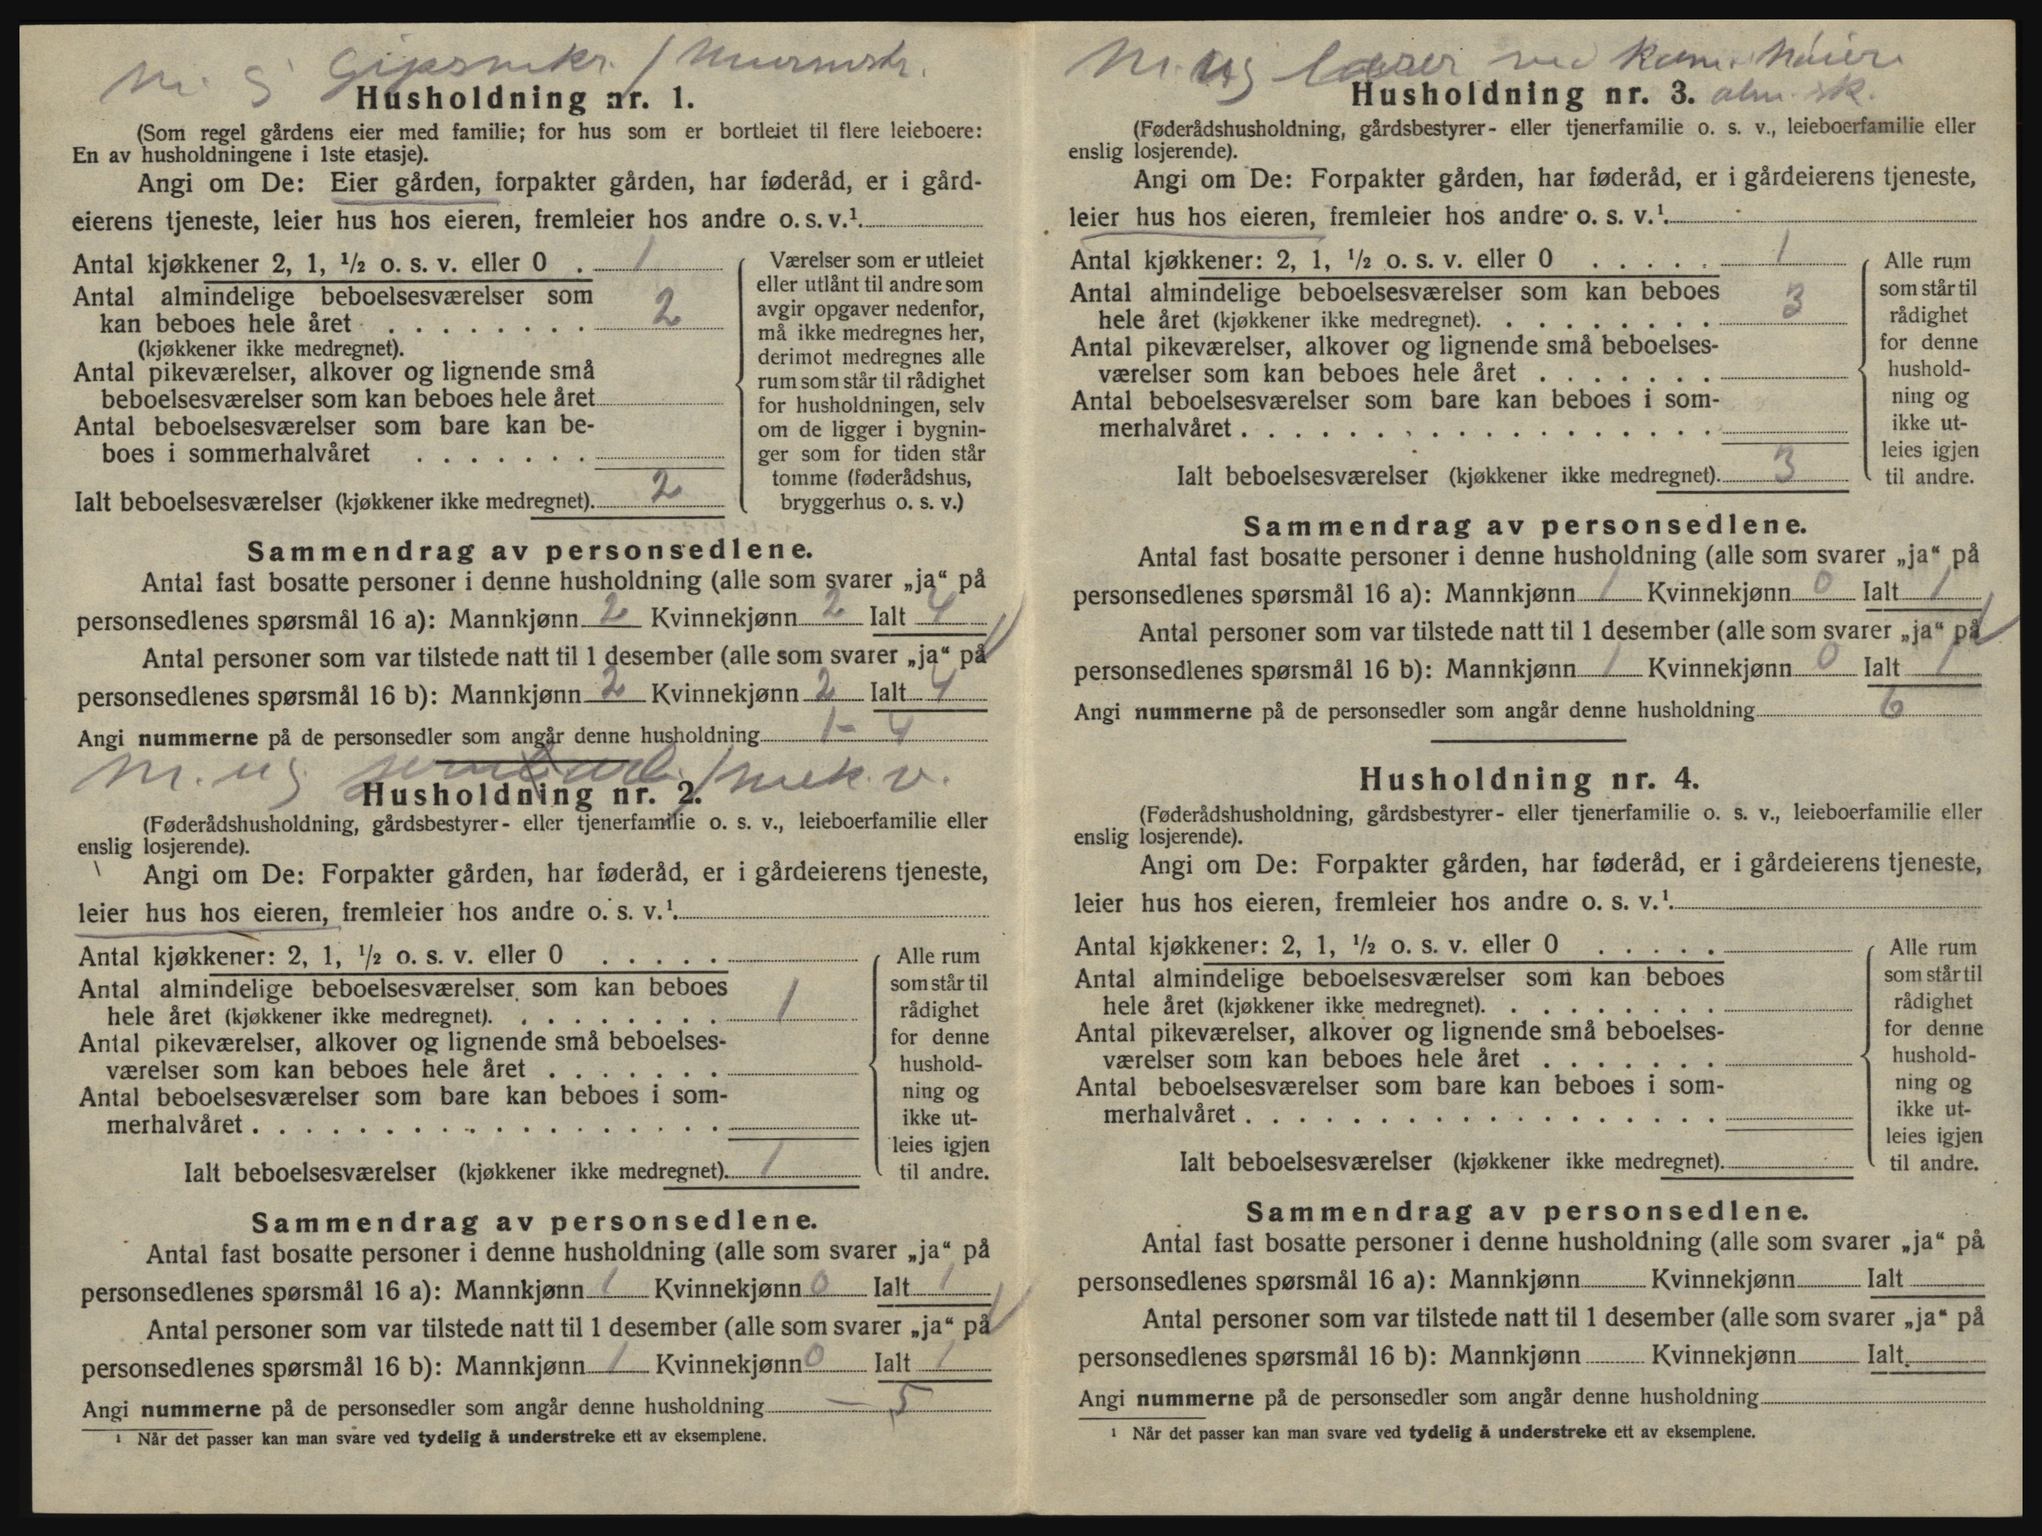 M. G Gipsmkr. / Murmestr.
Husholdning nr. 1.
(Som regel gårdens eier med familie; for hus som er bortleiet til flere leieboere:
En av husholdningene i 1ste etasje).
Angi om De: Eier gården, forpakter gården, har føderåd, er i gård-
eierens tjeneste, leier hus hos eieren, fremleier hos andre o. s. v.¹
Antal kjøkkener 2, 1, ½ o. s. v. eller 0 . 1
Antal almindelige beboelsesværelser som
kan beboes hele året . . . . . . . . 2
(kjøkkener ikke medregnet).
Antal pikeværelser, alkover og lignende små
beboelsesværelser som kan beboes hele året
Antal beboelsesværelser som bare kan be-
boes i sommerhalvåret . . . . . . .
Ialt beboelsesværelser (kjøkkener ikke medregnet). 2
Værelser som er utleiet
eller utlånt til andre som
avgir opgaver nedenfor,
må ikke medregnes her,
derimot medregnes alle
rum som står til rådighet
for husholdningen, selv
om de ligger i bygnin-
ger som for tiden står
tomme (føderådshus,
bryggerhus o. s. v.)
Sammendrag av personsedlene.
Antal fast bosatte personer i denne husholdning (alle som svarer „ja“ på
personsedlenes spørsmål 16 a): Mannkjønn 2 Kvinnekjønn 2 Ialt 4
Antal personer som var tilstede natt til 1 desember (alle som svarer „ja“ på
personsedlenes spørsmål 16 b): Mannkjønn 2 Kvinnekjønn 2 Ialt 4
Angi nummerne på de personsedler som angår denne husholdning 1 - 4
M. ug / mek. v.
Husholdning nr. 2.
(Føderådshusholdning, gårdsbestyrer- eller tjenerfamilie o. s. v., leieboerfamilie eller
enslig losjerende).
Angi om De: Forpakter gården, har føderåd, er i gårdeierens tjeneste,
leier hus hos eieren, fremleier hos andre o. s. v.¹
Antal kjøkkener: 2, 1, ½ o. s. v. eller 0 . . . . .
Antal almindelige beboelsesværelser som kan beboes
hele året (kjøkkener ikke medregnet). . . . . . . . . 1
Antal pikeværelser, alkover og lignende små beboelses-
værelser som kan beboes hele året . . . . . . .
Antal beboelsesværelser som bare kan beboes i som-
merhalvåret . . . . . . . . . . . . . . . . . .
Ialt beboelsesværelser (kjøkkener ikke medregnet). 1
Alle rum
som står til
rådighet
for denne
hushold-
ning og
ikke ut-
leies igjen
til andre.
Sammendrag av personsedlene.
Antal fast bosatte personer i denne husholdning (alle som svarer „ja“ på
personsedlenes spørsmål 16 a): Mannkjønn 1 Kvinnekjønn 0 Ialt 1
Antal personer som var tilstede natt til 1 desember (alle som svarer „ja“ på
personsedlenes spørsmål 16 b): Mannkjønn 1 Kvinnekjønn 0 Ialt 1
Angi nummerne på de personsedler som angår denne husholdning — 5
¹ Når det passer kan man svare ved tydelig å understreke ett av eksemplene.
M. ug lærer ved
Husholdning nr. 3. alm. sk.
(Føderådshusholdning, gårdsbestyrer- eller tjenerfamilie o. s. v., leieboerfamilie eller
enslig losjerende).
Angi om De: Forpakter gården, har føderåd, er i gårdeierens tjeneste,
leier hus hos eieren, fremleier hos andre o. s. v.¹
Antal kjøkkener: 2, 1, ½ o. s. v. eller 0 . . . . . 1
Antal almindelige beboelsesværelser som kan beboes
hele året (kjøkkener ikke medregnet). . . . . . . . . 3
Antal pikeværelser, alkover og lignende små beboelses-
værelser som kan beboes hele året . . . . . . .
Antal beboelsesværelser som bare kan beboes i som-
merhalvåret . . . . . . . . . . . . . . . . . .
Ialt beboelsesværelser (kjøkkener ikke medregnet). 3
Alle rum
som står til
rådighet
for denne
hushold-
ning og
ikke ut-
leies igjen
til andre.
Sammendrag av personsedlene.
Antal fast bosatte personer i denne husholdning (alle som svarer „ja“ på
personsedlenes spørsmål 16 a): Mannkjønn 1 Kvinnekjønn 0 Ialt 1
Antal personer som var tilstede natt til 1 desember (alle som svarer „ja“ på
personsedlenes spørsmål 16 b): Mannkjønn 1 Kvinnekjønn 0 Ialt 1
Angi nummerne på de personsedler som angår denne husholdning 6
Husholdning nr. 4.
(Føderådshusholdning, gårdsbestyrer- eller tjenerfamilie o. s. v., leieboerfamilie eller
enslig losjerende).
Angi om De: Forpakter gården, har føderåd, er i gårdeierens tjeneste,
leier hus hos eieren, fremleier hos andre o. s. v.¹
Antal kjøkkener: 2, 1, ½ o. s. v. eller 0 . . . . .
Antal almindelige beboelsesværelser som kan beboes
hele året (kjøkkener ikke medregnet). . . . . . . . .
Antal pikeværelser, alkover og lignende små beboelses-
værelser som kan beboes hele året . . . . . . .
Antal beboelsesværelser som bare kan beboes i som-
merhalvåret . . . . . . . . . . . . . . . . . .
Ialt beboelsesværelser (kjøkkener ikke medregnet).
Alle rum
som står til
rådighet
for denne
hushold-
ning og
ikke ut-
leies igjen
til andre.
Sammendrag av personsedlene.
Antal fast bosatte personer i denne husholdning (alle som svarer „ja“ på
personsedlenes spørsmål 16 a): Mannkjønn Kvinnekjønn Ialt
Antal personer som var tilstede natt til 1 desember (alle som svarer „ja“ på
personsedlenes spørsmål 16 b): Mannkjønn Kvinnekjønn Ialt
Angi nummerne på de personsedler som angår denne husholdning
¹ Når det passer kan man svare ved tydelig å understreke ett av eksemplene.